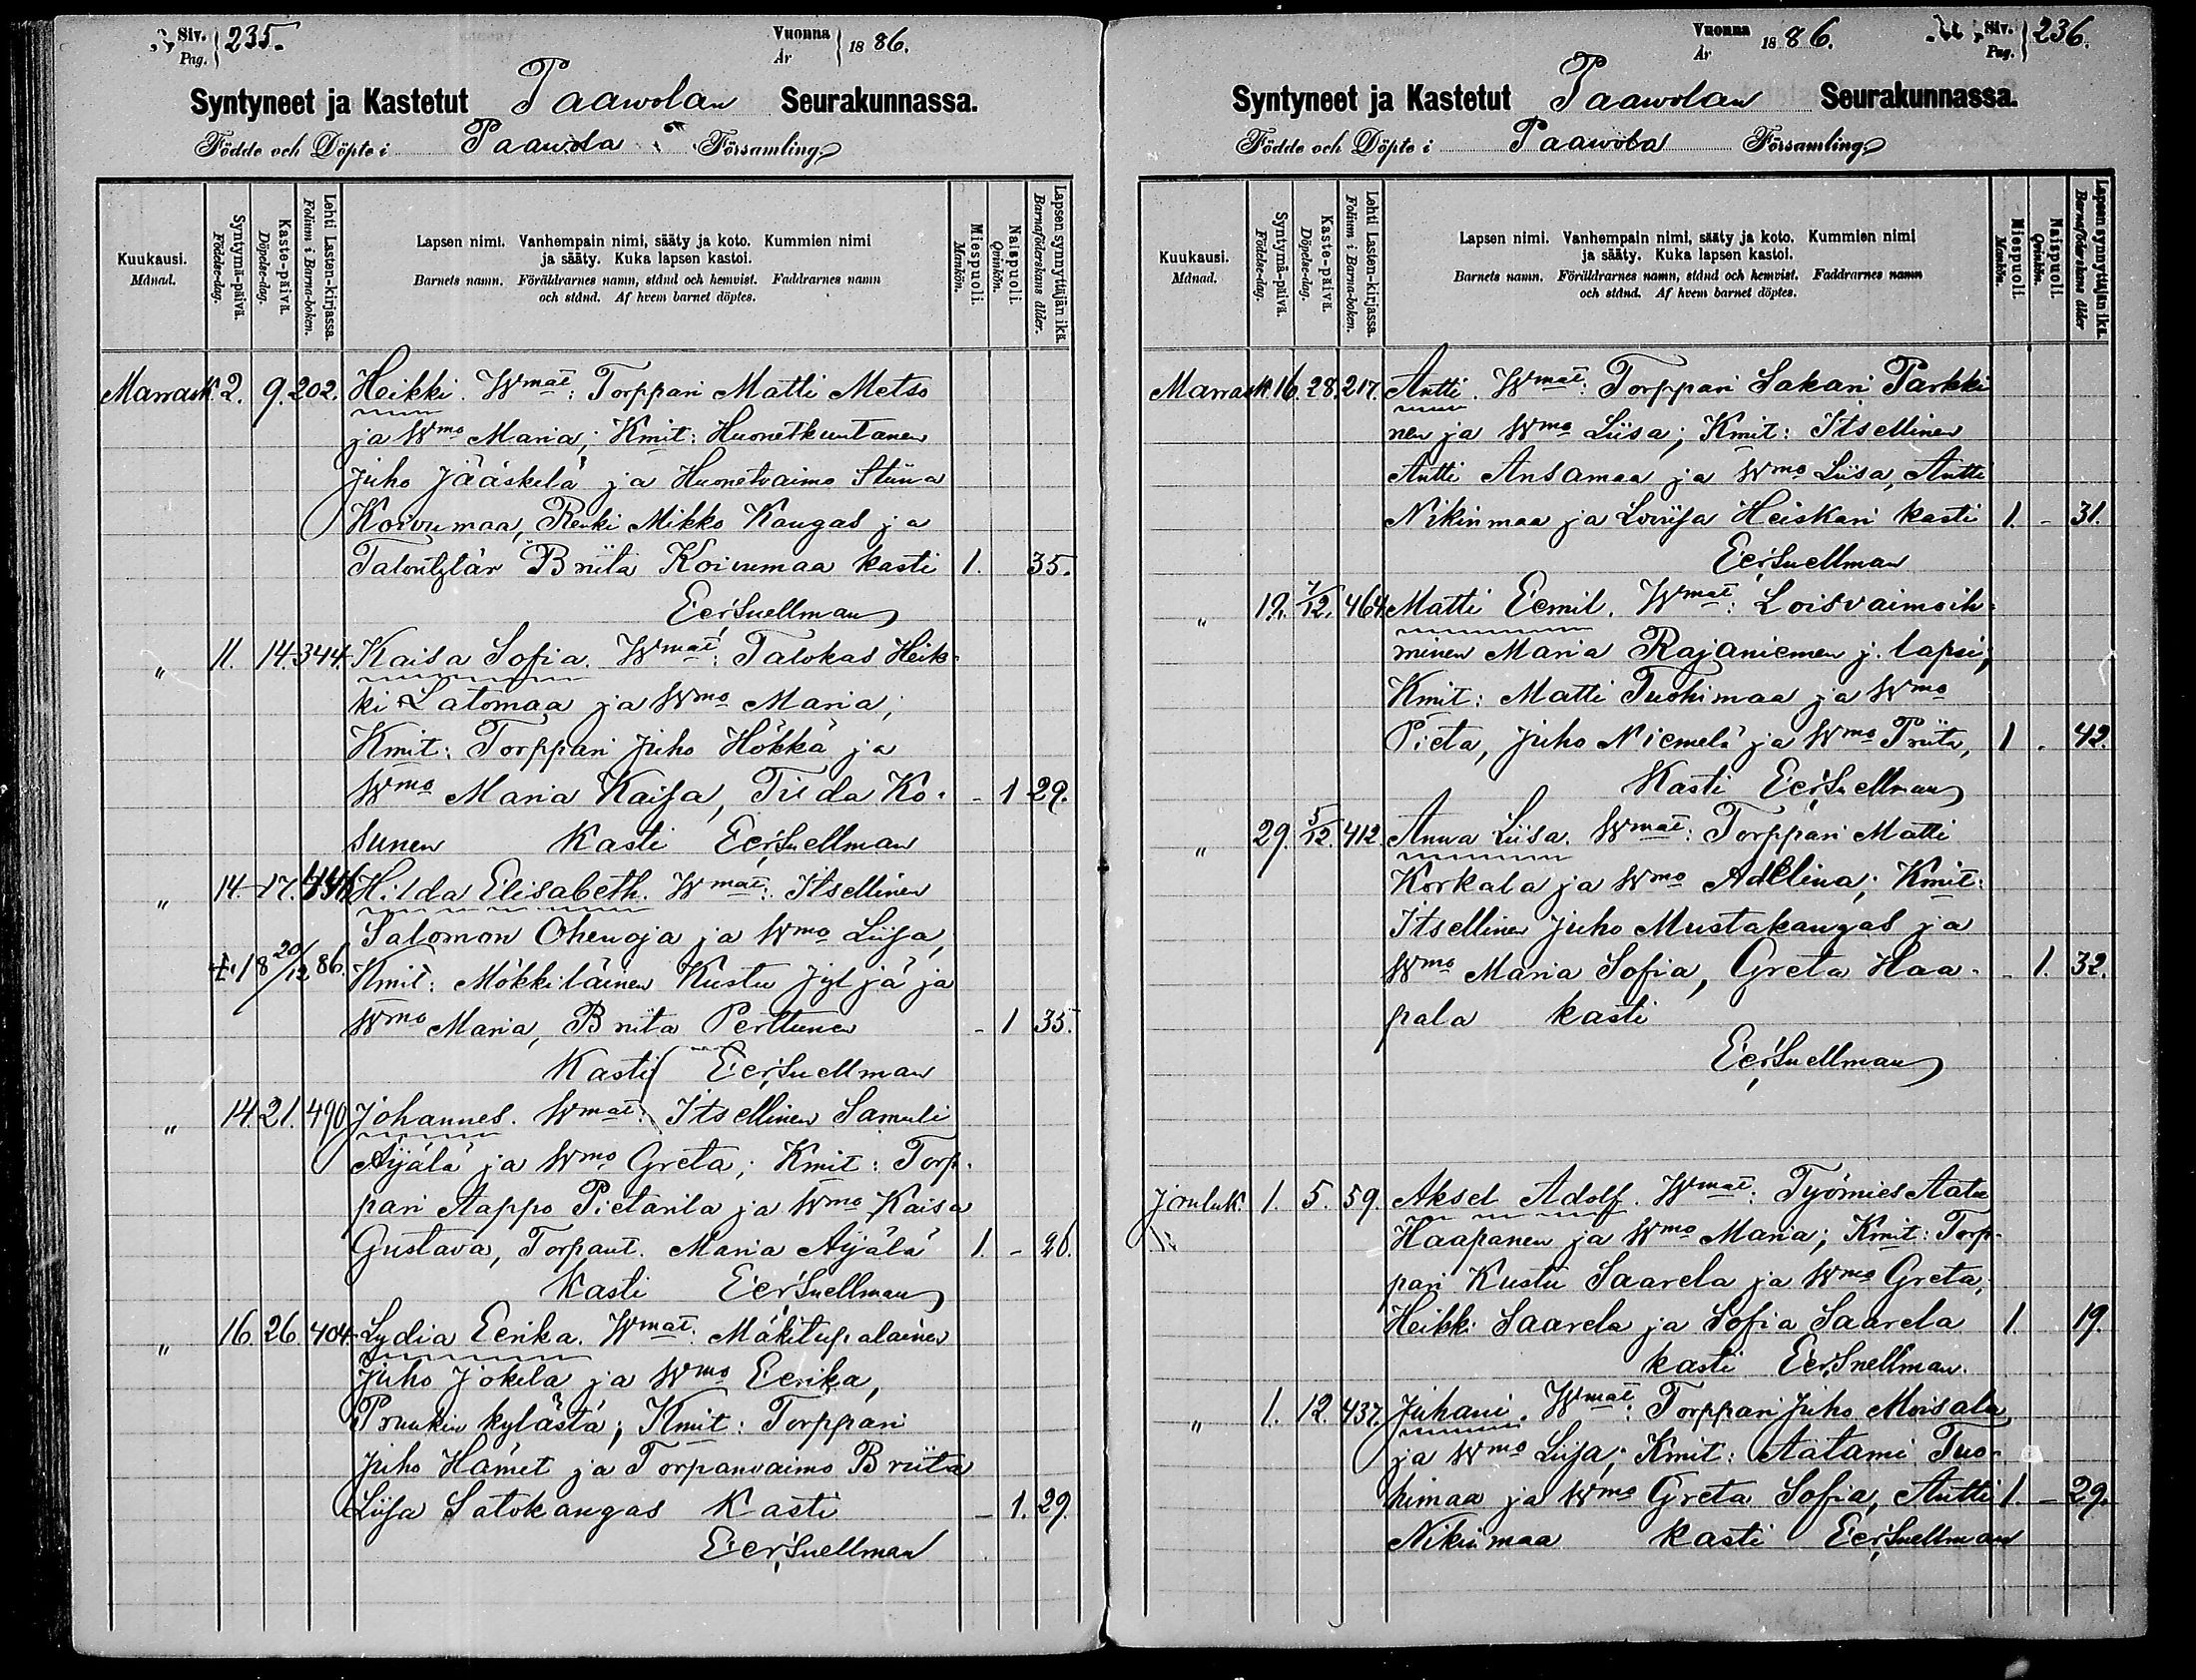 Siv. Pag. 235.
Vuonna År 1886.
Syntyneet ja Kastetut Paawolan Seurakunnassa.
Födde och Döpte i Paawola Församling
Kuukausi. Månad.
Syntymä-päivä. Födelse-dag.
Kaste-päivä. Döpelse-dag.
Lehti Lasten-kirjassa. Folium i Barna-boken.
Lapsen nimi. Vanhempain nimi, sääty ja koto. Kummien nimi
ja sääty. Kuka lapsen kastoi.
Barnets namn. Föräldrarnes namn, stånd och hemvist. Faddrarnes namn
och stånd. Af hvem barnet döptes.
Miespuoli. Mankön.
Naispuoli. Qvinkön.
Lapsen synnyttäjän ikä. Barnaföderskans ålder.
Marrask. 2. 9. 202. Heikki. Wmat: Torppari Matti Metso
ja Wmo Maria; Kmit: Huonetkuntanen
Juho Jääskelä ja Huonetvaimo Stiina
Koivumaa, Renki Mikko Kangas ja
Talontytär Briita Koivumaa kasti 1. 35.
Eer. Snellman
" 11. 14. 344. Kaisa Sofia. Wmat: Talokas Heik-
ki Latomaa ja Wmo Maria;
Kmit: Torppari Juho Hökkä ja
Wmo Maria Kaisa, Tiida Ko- - 1 29.
sunen Kasti Eer. Snellman
" 14. 17. Hilda Elisabeth. Wmat: Itsellinen
Salomon Ohenoja ja Wmo Liisa,
†. 18 20/12 86. Kmit: Mökkiläinen Kustu Jyljä ja
Wmo Maria, Briita Perttunen - 1 35.
Kasti Eer. Snellman
" 14. 21. 490 Johannes. Wmat: Itsellinen Samuli
Äijälä ja Wmo Greta; Kmit: Torp-
pari Aappo Pietarila ja Wmo Kaisa
Gustava, Torpant. Maria Äijälä 1. - 26.
Kasti Eer. Snellman
" 16. 26. 404. Lydia Eerika. Wmat: Mäkitupalainen
Juho Jokela ja Wmo Eerika,
Pruukin kylästä; Kmit: Torppari
Juho Hämet ja Torpanvaimo Briita
Liisa Satokangas Kasti - 1. 29.
Eer. Snellman
Vuonna År 1886.
Siv. Pag. 236.
Syntyneet ja Kastetut Paawolan Seurakunnassa.
Födde och Döpte i Paawola Församling
Kuukausi. Månad.
Syntymä-päivä. Födelse-dag.
Kaste-päivä. Döpelse-dag.
Lehti Lasten-kirjassa. Folium i Barna-boken.
Lapsen nimi. Vanhempain nimi, sääty ja koto. Kummien nimi
ja sääty. Kuka lapsen kastoi.
Barnets namn. Föräldrarnes namn, stånd och hemvist. Faddrarnes namn
och stånd. Af hvem barnet döptes.
Miespuoli. Mankön.
Naispuoli. Qvinkön.
Lapsen synnyttäjän ikä. Barnaföderskans ålder
Marrask. 16. 28. 217. Antti. Wmat: Torppari Sakari Parkki
nen ja Wmo Liisa; Kmit: Itsellinen
Antti Ansamaa ja Wmo Liisa, Antti
Nikinmaa ja Loviisa Heiskari kasti 1. - 31.
Eer. Snellman
" 19. 7/12. 464. Matti Eemil. Wmat: Loisvaimoih-
minen Maria Rajaniemen j. lapsi;
Kmit: Matti Tuohimaa ja Wmo
Pieta, Juho Niemelä ja Wmo Priita, 1 - 42.
Kasti Eer. Snellman
" 29. 5/12. 412. Anna Liisa. Wmat: Torppari Matti
Korkala ja Wmo Adelina; Kmit:
Itsellinen Juho Mustakangas ja
Wmo Maria Sofia, Greta Haa- - 1. 32.
pala kasti
Eer. Snellman
Jouluk. 1. 5. 59. Aksel Adolf. Wmat: Työmies Aatu
Haapanen ja Wmo Maria; Kmit: Torp-
pari Kustu Saarela ja Wmo Greta,
Heikki Saarela ja Sofia Saarela 1. 19.
kasti Eer. Snellman.
" 1. 12. 437. Juhani. Wmat: Torppari Juho Moisala
ja Wmo Liisa; Kmit: Aatami Tuo-
himaa ja Wmo Greta Sofia, Antti 1. - 29.
Nikinmaa kasti Eer. Snellman